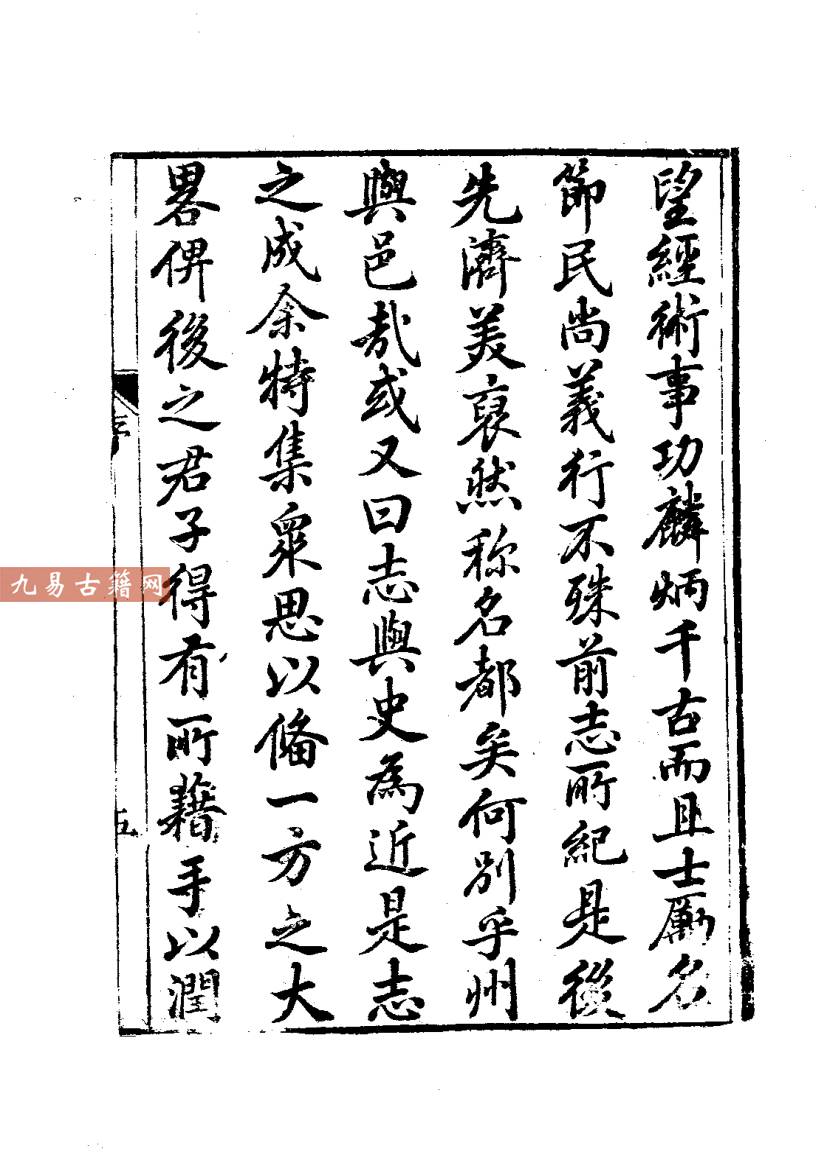 望經術事功麟炳千古而且士勵名
節民尚義行不殊前志所紀是後
先濟美裒然称名都矣何別乎州
與邑哉或又曰志與史為近是志
之成余特集衆思以備一方之大
畧俾後之君子得有所藉手以潤
序
五
九易古籍网